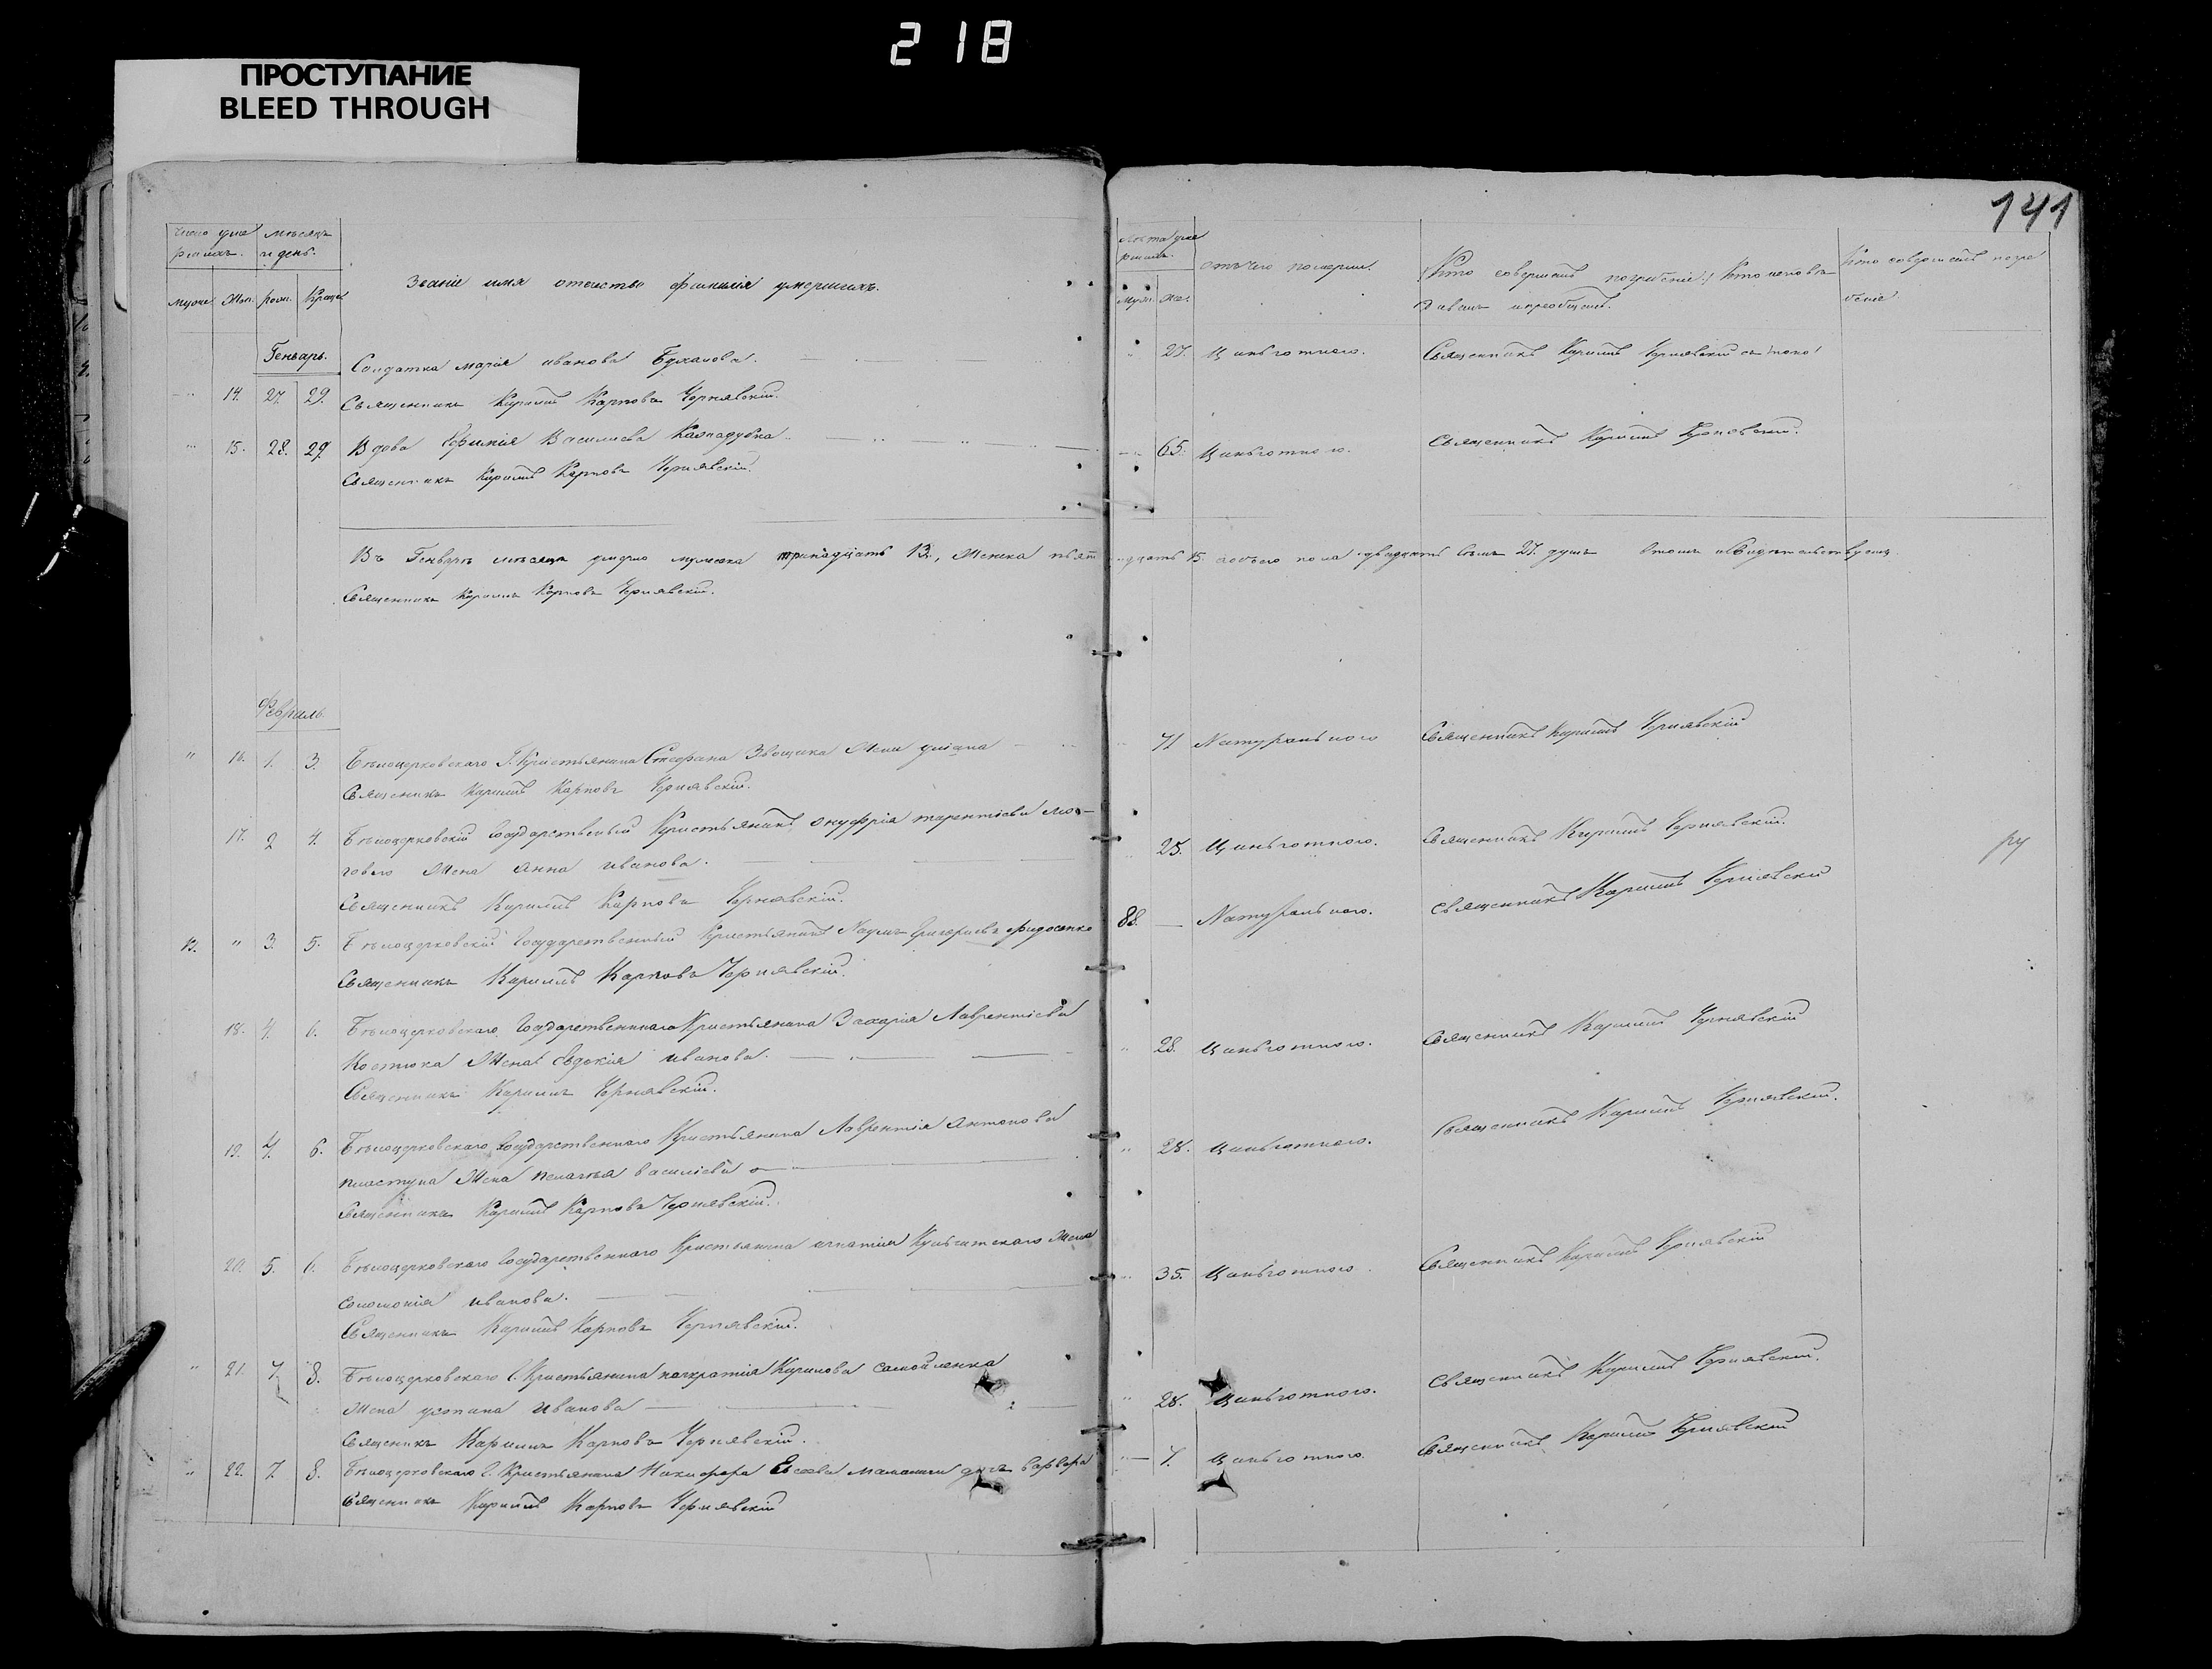 218
ПРОСТУПАНИЕ
BLEED THROUGH
141
Число уме месяцъ
ршихъ. и день.
Званіе имя отчество фамилія умершихъ.
муже Жен.
Лѣта уме
ршихъ.
Муж. Же.
отъ чего померли.
Кто совершалъ погребеніе
Кто совершалъ погре
беніе
Генварь.
Солдатка марія иванова
27. Цынготного. Священникъ Кириллъ Чернявскій
14. 27 29. Священникъ Кириллъ Карповъ Чернявскій.
15. 28. 29. Вдова Василиева
65. Цынготного. Священникъ Кириллъ Чернявскій.
Священникъ Кириллъ Карповъ Чернявскій.
Въ Генварѣ месяцѣ умерло мужеска тринадцать 13, Женска пятнадцать 15. обоего пола двадцать 27. душъ
Священникъ Кириллъ Карповъ Чернявскій.
Февраль.
" 16. 1. 3. Бѣлоцерковского Г. Крестьянина Стефана Жена уліана
71 Натурального Священникъ Кириллъ Чернявскій
Священникъ Кириллъ Карповъ Чернявскій.
17. 2 4. Бѣлоцерковскій Государственный Крестьянинъ онуфрія терентіева
Жена анна иванова.
25. Цынготного. Священникъ Кириллъ Чернявскій.
ру
Священникъ Кириллъ Карповъ Чернявскій.
" 3. 5. Бѣлоцерковскій Государственный Крестьянинъ Наумъ Григорьевъ фидосенко
88. Натурального. Священникъ Кириллъ Чернявскій
Священникъ Кириллъ Карповъ Чернявскій.
18. 4. 6. Бѣлоцерковского Государственного Крестьянина Захарія Лаврентіева
Костюка Жена Евдокія иванова.
" 28. Цынготного. Священникъ Кириллъ Чернявскій
Священникъ Кириллъ Чернявскій.
19. 4. 6. Бѣлоцерковского Государственного Крестьянина Лаврентія антонова
пластуна Жена пелагія василіева
" 28. Цынготного. Священникъ Кириллъ Чернявскій.
Священникъ Кириллъ Карповъ Чернявскій.
20. 5. 6. Бѣлоцерковского Государственного Крестьянина игнатія Жена
соломонія иванова.
" 35. Цынготного. Священникъ Кириллъ Чернявскій
Священникъ Кириллъ Карповъ Чернявскій.
" 21. 7. 8. Бѣлоцерковского Г. Крестьянина панкратія Кирилова самойленка
Жена устина иванова
" 28. Цынготного. Священникъ Кириллъ Чернявскій.
Священникъ Кириллъ Карповъ Чернявскій.
" 22. 7. 8. Бѣлоцерковского Г. Крестьянина Никифора дочь варвара
Цынготного. Священникъ Кириллъ Чернявскій
Священникъ Кириллъ Карповъ Чернявскій